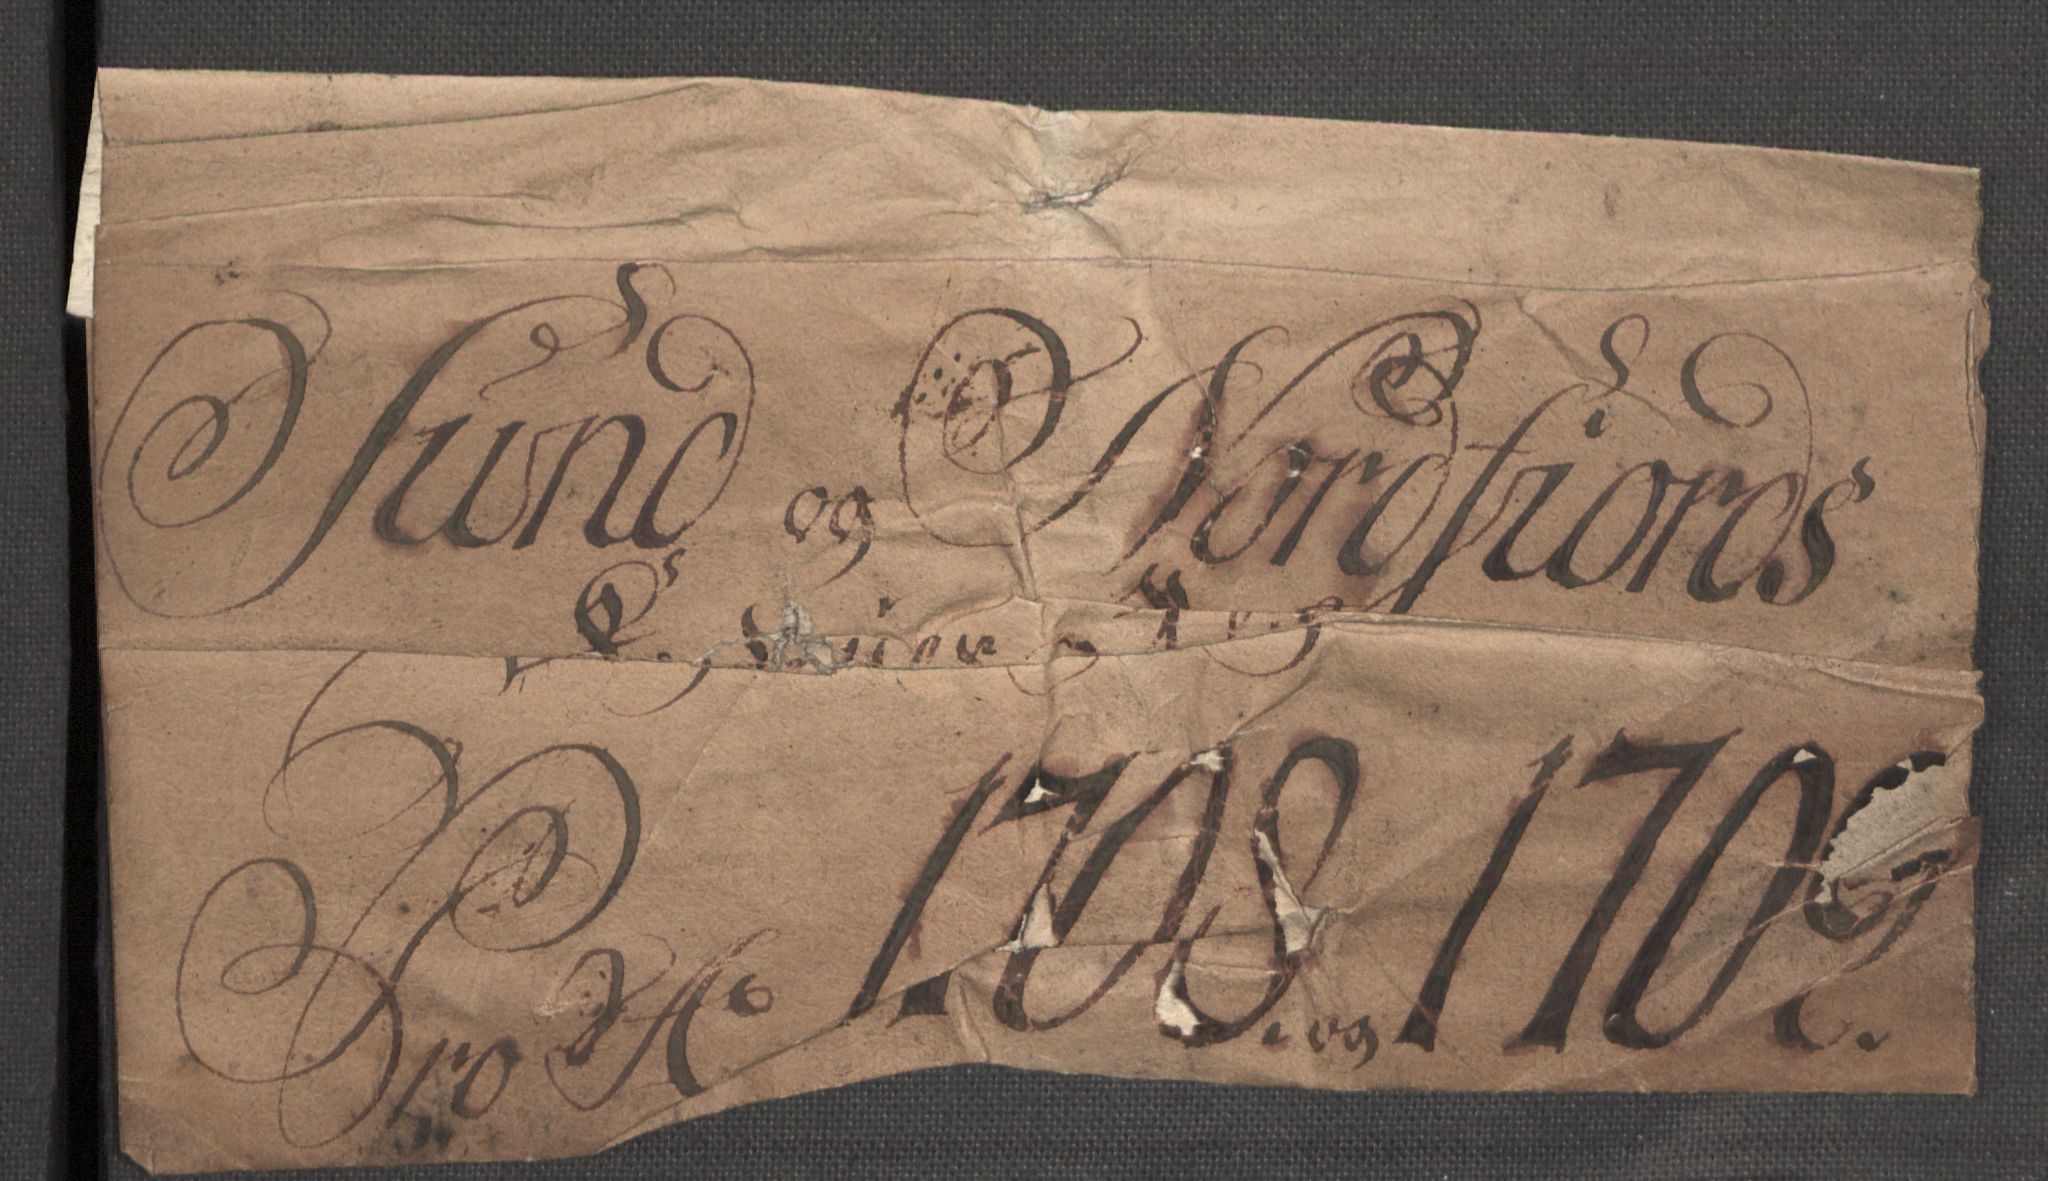 Sund og Nordfiords
Pro A⁰ 1708. og 1709.